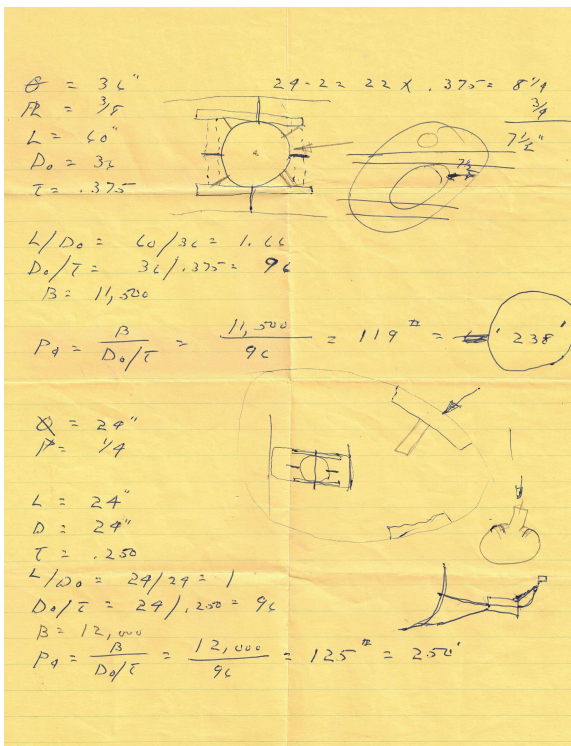 θ = 36"
PL = 3/8
L = 60"
Do = 36
T = .375
24-2 = 22 x .375 = 8 1/4
3/4
7 1/2"
7 1/2
L/Do = 60/36 = 1.66
Do/T = 36/.375 = 96
B = 11,500
Pa = B / Do/T = 11,500 / 96 = 119 # = 238'
= 24"
P = 1/4
L = 24"
D = 24"
T = .250
L/Do = 24/24 = 1
Do/T = 24/.250 = 96
B = 12,000
Pa = B / Do/T = 12,000 / 96 = 125 # = 250'